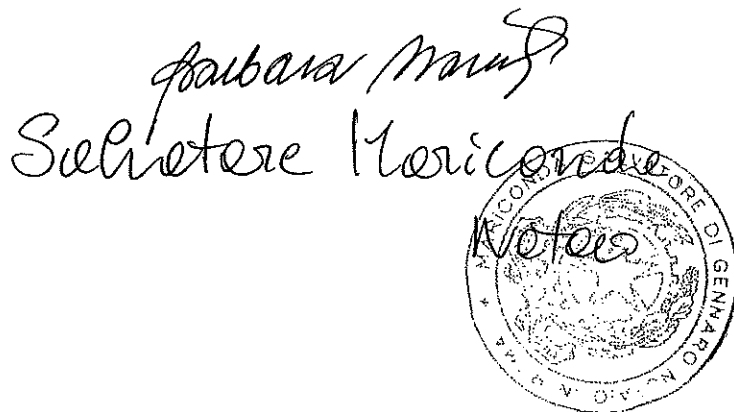 Barbara
Salvatore Mariconda
Notaio
MARICONDA SALVATORE DI GENNARO NOTAIO